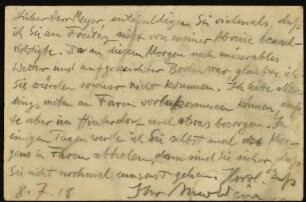 Lieber Herr Meyer, entschuldigen Sie vielmals, daß
ich Sie am Freitag nicht von meiner Abreise benach-
richtigte. Da an diesem Morgen noch miserables
Wetter und aufgeweichter Boden war, glaubte ich
Sie würden sowieso nicht kommen. Ich hatte aller-
dings mit an Faren können,
hatte aber im noch etwas besorgen. In
einigen Tagen werde ich Sie selbst mal des Mor-
gens in Faren abholen, dann sind Sie sicher, daß
Sie nicht nochmal umsonst gehen. Herzl. Gruß
8. 7. 18 Ihr